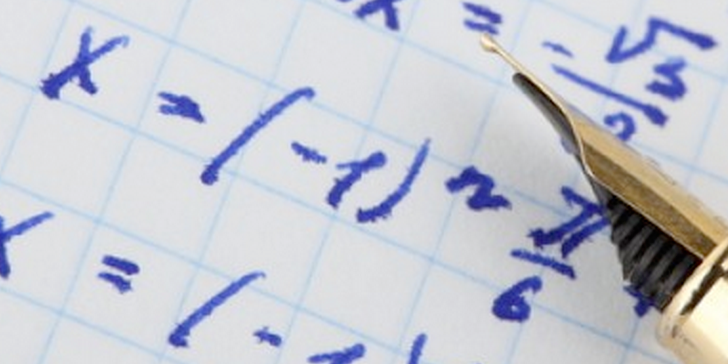 x = -√3/2
x = (-1)ⁿ π/6 +
x = (-1)